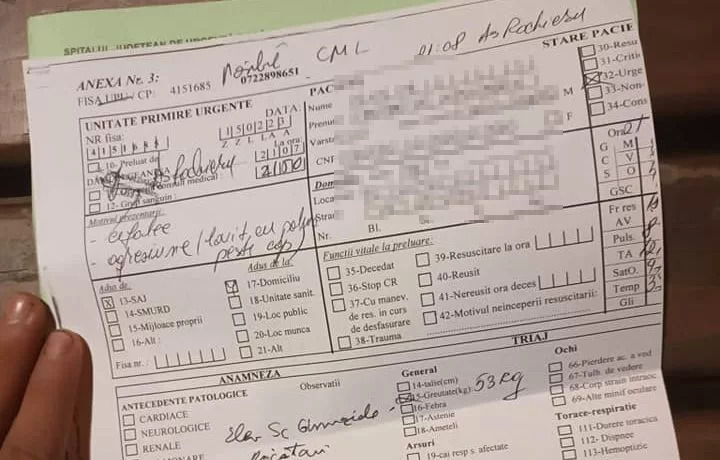 SPITALUL JUDEȚEAN DE URGE
ANEXA Nr. 3:
FISA UPU / CP: 4151685
0722898651
CML
21:08 As Rochieru
STARE PACIE
UNITATE PRIMIRE URGENTE
NR fisa:
DATA:
150223
Z Z L L A A
La ora:
2107
10- Preluat de
consult medical
12- Grup sanguin :
Motivul prezentarii:
- cefalee
- agresiune / lovit cu
peste cap
PAC
Nume
Prenu
Varsta
CNP
Dom
Loca
Strad
Nr.
Bl.
M
F
30-Resu
31-Critic
32-Urge
33-Non-
34-Cons
Ora 21
G M
C V
S O
GSC
Fr res
AV
Puls
TA
SatO.
Temp
Gli
Adus de:
13-SAJ
14-SMURD
15-Mijloace proprii
16-Alt :
Fisa nr. :
Adus de la:
17-Domiciliu
18-Unitate sanit.
19-Loc public
20-Loc munca
21-Alt
Functii vitale la preluare:
35-Decedat
36-Stop CR
37-Cu manev.
de res. in curs
de desfasurare
38-Trauma
39-Resuscitare la ora
40-Reusit
41-Nereusit ora deces
42-Motivul neinceperii resuscitarii:
ANAMNEZA
TRIAJ
ANTECEDENTE PATOLOGICE
Observatii
CARDIACE
NEUROLOGICE
RENALE
Elev Sc Gimnaziala
General
14-talie(cm)
15-Greutate(kg): 53 kg
16-Febra
17-Astenie
18-Ameteli
Arsuri
19-cai resp s. afectate
Ochi
66-Pierdere ac. a ved
67-Tulb. de vedere
68-Corp strain intraoc
69-Alte minif oculare
Torace-respiratie
111-Durere toracica
112- Dispnee
113-Hemoptizie